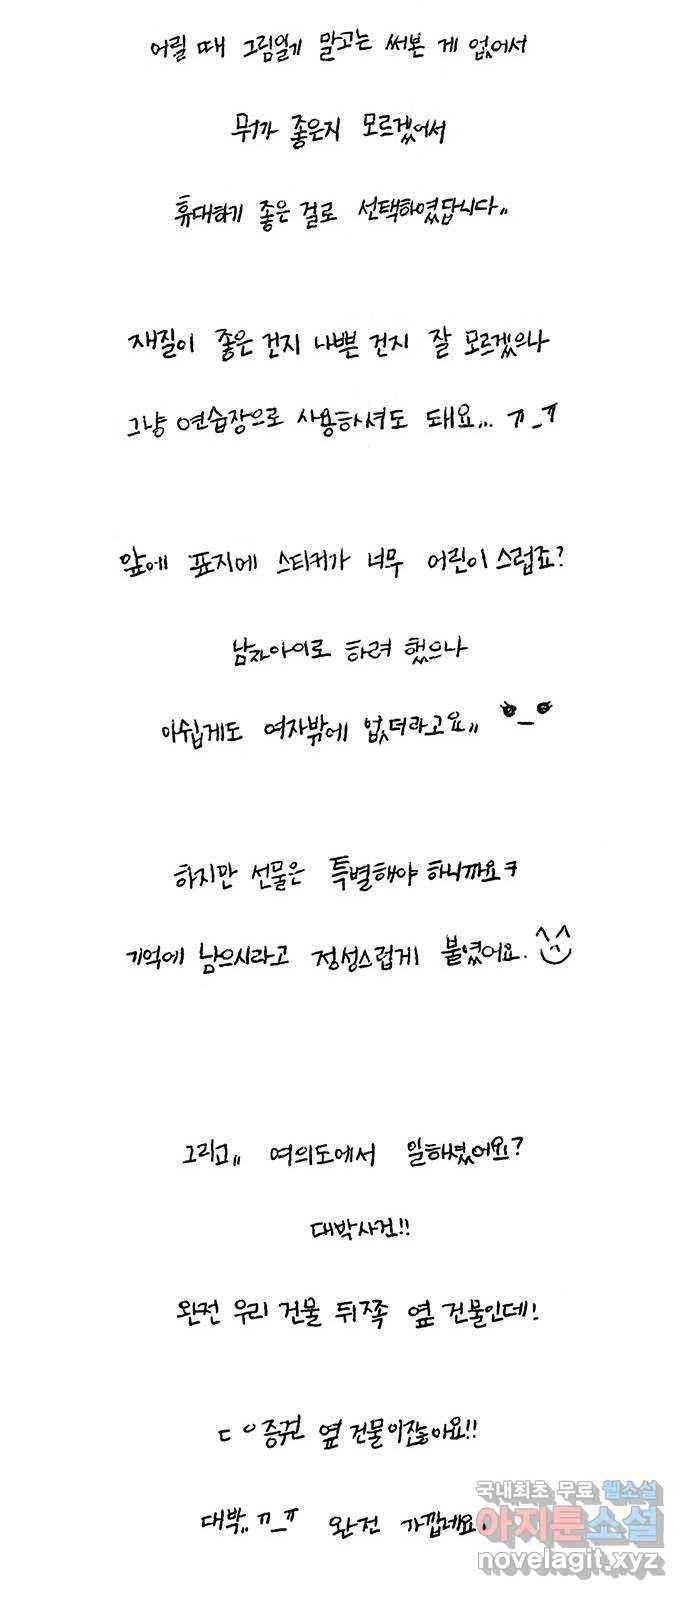 어릴 때 그림일기 말고는 써본 게 없어서
뭐가 좋은지 모르겠어서
휴대하기 좋은 걸로 선택하였답니다,,
재질이 좋은 건지 나쁜 건지 잘 모르겠으나
그냥 연습장으로 사용하셔도 돼요... ㅠ_ㅠ
앞에 표지에 스티커가 너무 어린이스럽죠?
남자아이로 하려 했으나
아쉽게도 여자밖에 없더라고요,,
하지만 선물은 특별해야 하니까요ㅋ
기억에 남으시라고 정성스럽게 붙였어요.
그리고,, 여의도에서 일하셨어요?
대박사건!!
완전 우리 건물 뒤쪽 옆 건물인데!
ㄷㅇ증권 옆 건물이잖아요!!
대박,, ㅠ_ㅠ 완전 가깝네요.
국내최초 무료 웹소설
아지툰소설
novelagit.xyz